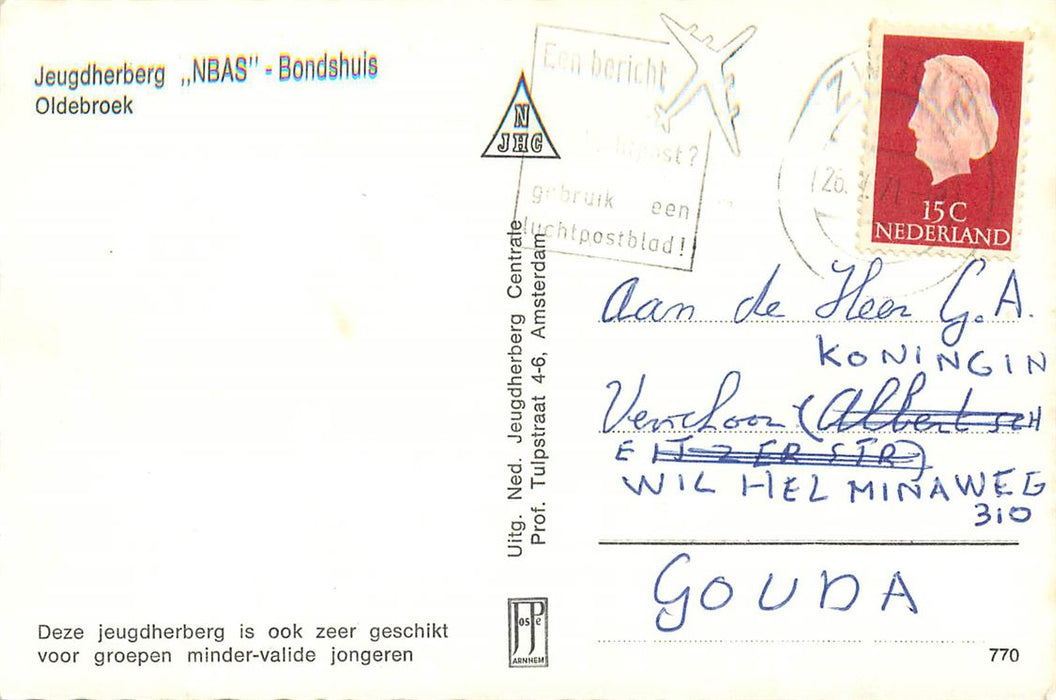 Jeugdherberg „NBAS" - Bondshuis
Oldebroek
N
JHC
Een bericht
luchtpost?
gebruik een
luchtpostblad!
26.
15 C
NEDERLAND
Uitg. Ned. Jeugdherberg Centrale
Prof. Tulpstraat 4-6, Amsterdam
Aan de Heer G.A.
KONINGIN
Verschoor (Albert SCH
EITZERSTR)
WILHELMINAWEG
310
GOUDA
Deze jeugdherberg is ook zeer geschikt
voor groepen minder-valide jongeren
JosPe
ARNHEM
770